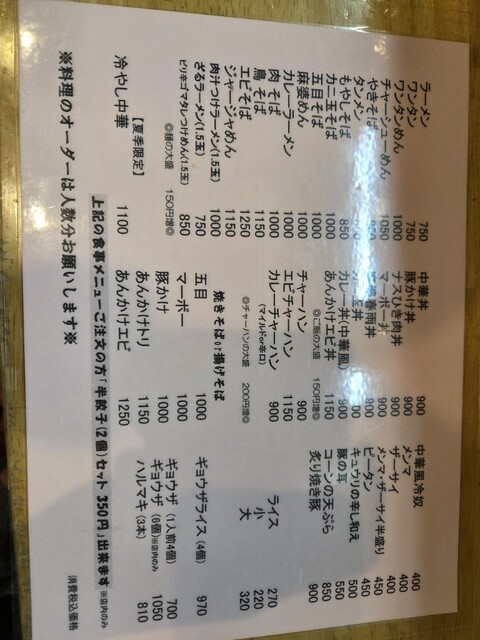 ラーメン 750
ワンタン 750
ワンタンめん 1000
チャーシューめん 1050
やきそば
タンメン
もやしそば 850
カニ玉そば 1000
五目そば 1000
麻婆めん 1000
カレーラーメン 1000
肉そば 1000
鳥そば 1150
エビそば 1250
ジャージャめん 1150
肉汁つけラーメン(1.5玉) 1000
ざるラーメン(1.5玉) 750
ピリ辛ゴマタレつけめん(1.5玉) 850
◎麺の大盛 150円増◎
【夏季限定】
冷やし中華 1100
中華丼 900
豚かけ丼 900
ナスひき肉丼 900
マーボー丼 900
春雨丼 900
玉丼 900
カレー丼(中華風) 900
あんかけエビ丼 1150
◎ご飯の大盛 150円増◎
チャーハン 900
エビチャーハン 1150
カレーチャーハン 900
(マイルドor辛口)
◎チャーハンの大盛 200円増◎
焼きそばor揚げそば
五目 1000
マーボー 1000
豚かけ 1000
あんかけトリ 1150
あんかけエビ 1250
中華風冷奴 400
メンマ 400
ザーサイ 400
メンマ・ザーサイ半盛り 450
ピータン 450
キュウリの辛し和え 500
豚の耳 550
コーンの天ぷら 850
炙り焼き豚 900
ライス 270
小 220
大 320
ギョウザライス(4個) 970
ギョウザ(1人前4個) 700
ギョウザ(6個)※店内のみ 1050
ハルマキ(3本) 810
上記の食事メニューご注文の方「半餃子(2個)セット 350円」出来ます ※店内のみ
※料理のオーダーは人数分お願いします※
消費税込価格